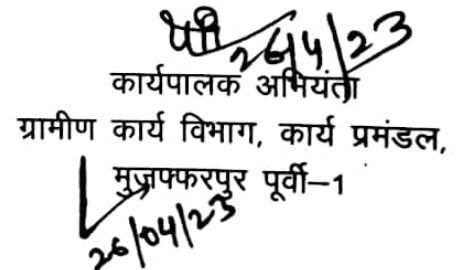 26/4/23
कार्यपालक अभियंता
ग्रामीण कार्य विभाग, कार्य प्रमंडल,
मुज़फ्फरपुर पूर्वी–1
26/04/23